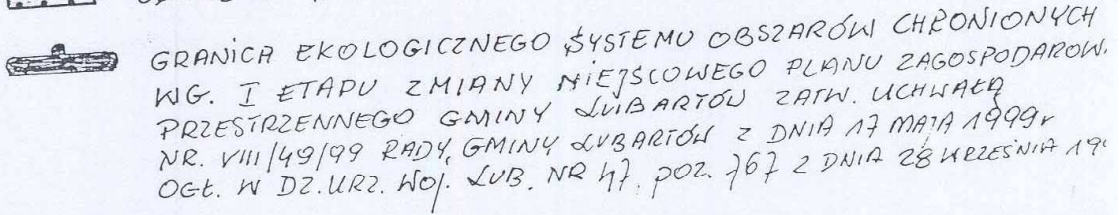 GRANICA EKOLOGICZNEGO SYSTEMU OBSZARÓW CHRONIONYCH
WG. I ETAPU ZMIANY MIEJSCOWEGO PLANU ZAGOSPODAROW.
PRZESTRZENNEGO GMINY LUBARTÓW ZATW. UCHWAŁĄ
NR. VIII/49/99 RADY GMINY LUBARTÓW Z DNIA 17 MAJA 1999r
OGŁ. W DZ.URZ. WOJ. LUB. NR 47, POZ. 767 Z DNIA 28 WRZEŚNIA 19